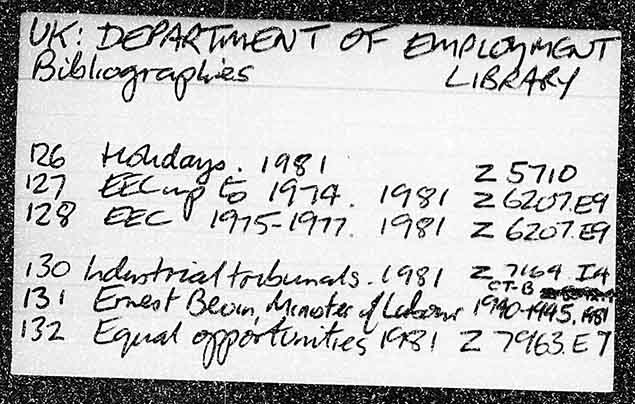 UK: DEPARTMENT OF EMPLOYMENT
Bibliographies LIBRARY
126 Holidays. 1981 Z 5710
127 EEC up to 1974. 1981 Z 6207.E9
128 EEC 1975-1977. 1981 Z 6207.E9
130 Industrial tribunals. 1981 Z 7164.I4
CT-B
131 Ernest Bevin, Minister of Labour 1940-1945. 1981
132 Equal opportunities 1981 Z 7963.E7